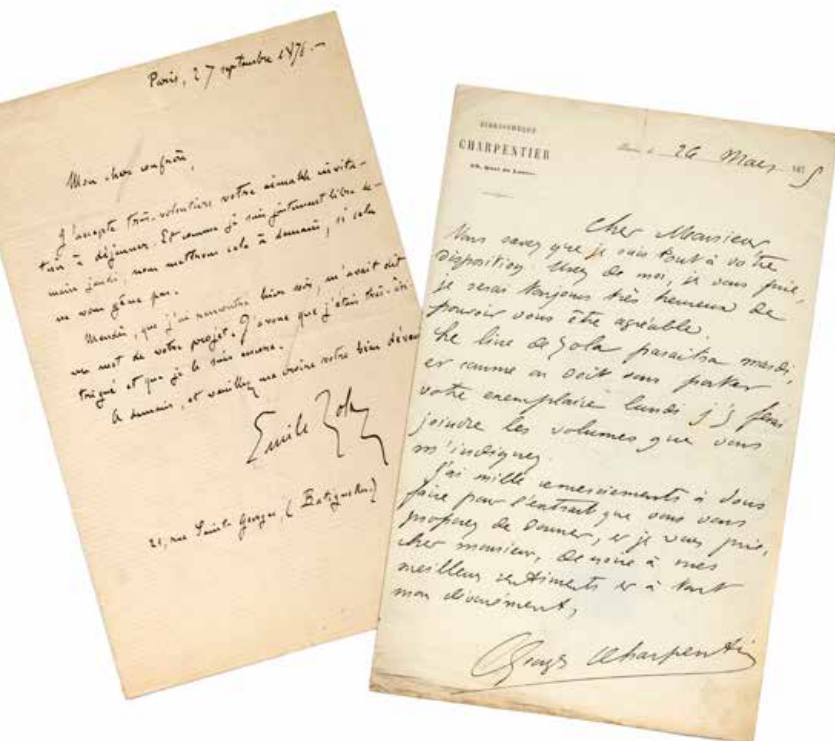 Paris, 27 septembre 1876.—
Mon cher confrère,
J'accepte très-volontiers votre aimable invita-
tion à déjeuner. Et comme je suis justement libre de-
main jeudi, nous mettrons cela à demain, si cela
ne vous gêne pas.
Mendès, que j'ai rencontré hier soir, m'avait dit
un mot de votre projet. J'avoue que j'étais très-in-
trigué et que je le suis encore.
A demain, et veuillez me croire votre bien dévoué
Emile Zola
21, rue Saint-Georges, (Batignolles)
BIBLIOTHÈQUE
CHARPENTIER
Quai du Louvre
Paris, le 26 Mars 1875
Cher Monsieur
Vous savez que je suis tout à votre
disposition. Usez de moi, je vous prie,
je serai toujours très heureux de
pouvoir vous être agréable.
Le livre de Zola paraitra mardi,
et comme on doit vous porter
votre exemplaire lundi j'y ferai
joindre les volumes que vous
m'indiquez.
J'ai mille remerciements à vous
faire pour l'extrait que vous vous
proposez de donner, et je vous prie,
cher monsieur, de croire à mes
meilleurs sentiments et à tout
mon dévouement,
Georges Charpentier